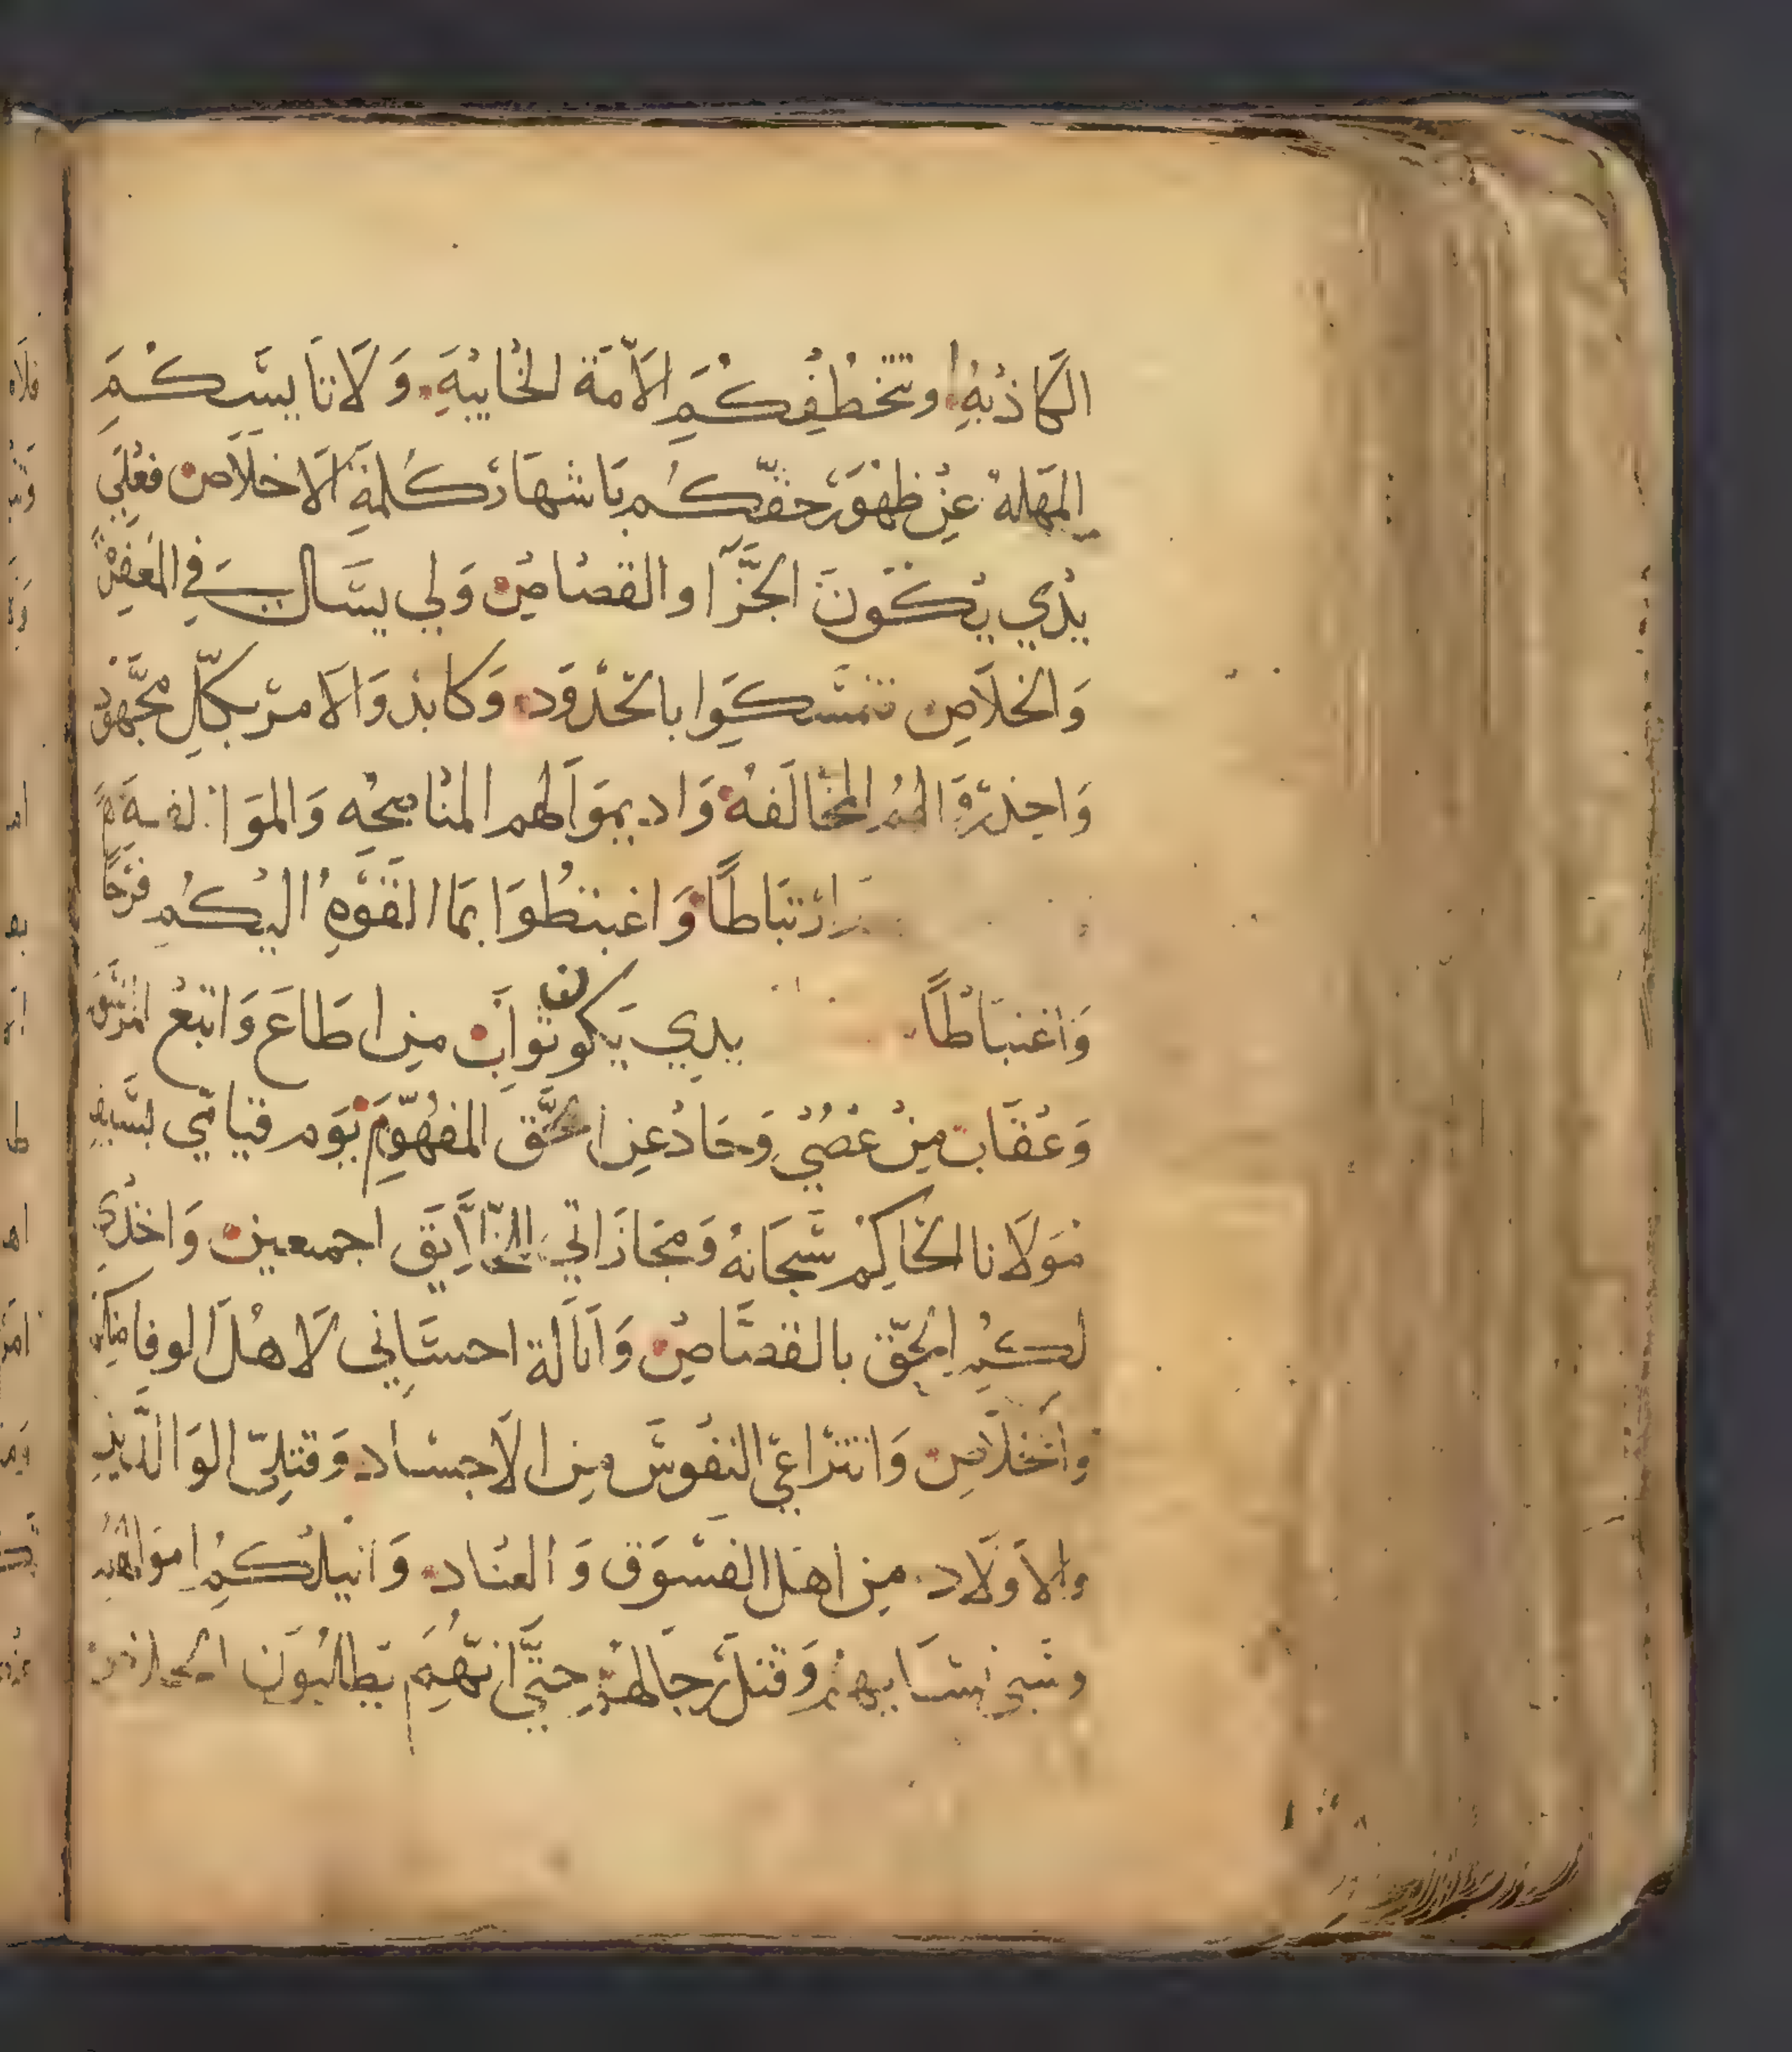 الكَاذبة وتتخطفكم الامّة الخايبة وَلَا تنَايسكم
المهلة عن ظهور حقكم باشهار كلمة الاخلاص فعلي
يدي يكون الجزآ والقصاص ولي يسال في المغفرة
وَالخلاص تمسكوا بالحدود وكابدوا الامر بكل مجهود
وَاحذروا لهم المخالفه وَاديموا لهم المناصحه وَالموَا لفه
ارتباطًا وَاغبتطوا بما القوه اليكم فرحًا
وَاغتباطًا يدي يكون ثواب من اطاع وَاتبع
وَعقاب من عصي وَحاد عن الحق المفهوم يوم قيامي بسيف
مولانا الحاكم سبحانه ومجازاتي الخلايق اجمعين وَاخذي
لكم الحق بالقصاص وَانالة احساني لاهل الوفا منكم
والخلاص وَانتزاعي النفوس من الاجساد وَقتلي الوالدين
والاولاد من اهل الفسوق وَالعناد وَانيلكم اموالهم
وسبي نسايهم وقتل رجالهم حتي انهم يطالبون